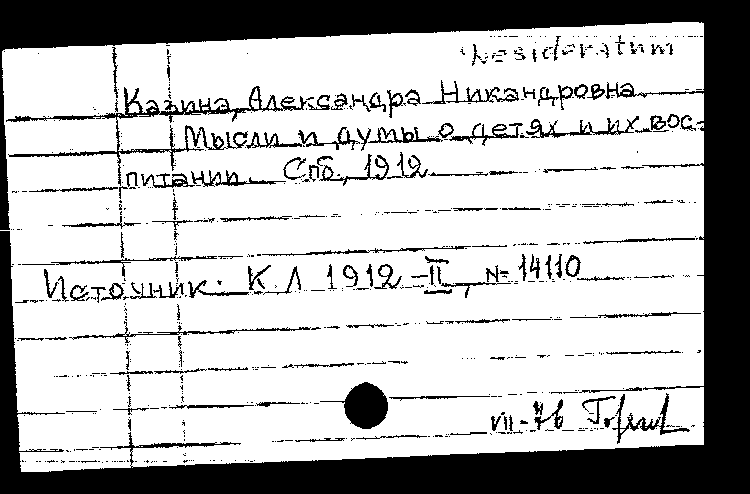 Desideratum
Казина, Александра Никандровна.
Мысли и думы о детях и их вос-
питании. Спб., 1912
Источник: КЛ 1912-II, №14110
VII-76